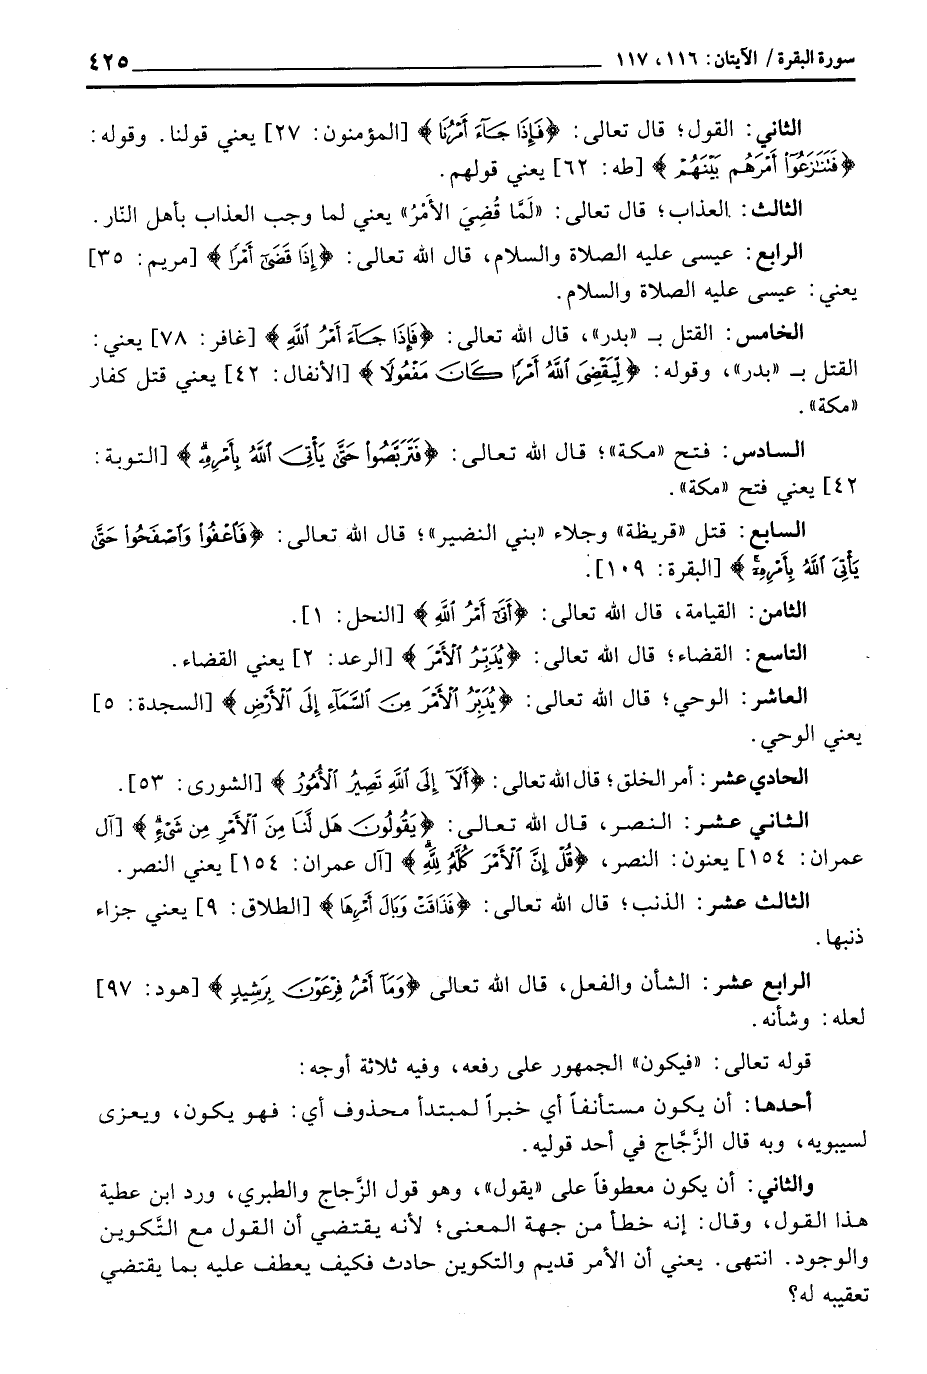 سورة البقرة / الآيتان: ١١٦، ١١٧ ٤٢٥
الثاني: القول؛ قال تعالى: ﴿فَإِذَا جَآءَ أَمْرُنَا﴾ [المؤمنون: ٢٧] يعني قولنا. وقوله:
﴿فَنَنَٰزَعُوٓا۟ أَمْرَهُم بَيْنَهُمْ﴾ [طه: ٦٢] يعني قولهم.
الثالث: العذاب؛ قال تعالى: «لَمَّا قُضِيَ الأَمْرُ» يعني لما وجب العذاب بأهل النّار.
الرابع: عيسى عليه الصلاة والسلام، قال الله تعالى: ﴿إِذَا قَضَىٰٓ أَمْرًا﴾ [مريم: ٣٥]
يعني: عيسى عليه الصلاة والسلام.
الخامس: القتل بـ «بدر»، قال الله تعالى: ﴿فَإِذَا جَآءَ أَمْرُ ٱللَّهِ﴾ [غافر: ٧٨] يعني:
القتل بـ «بدر»، وقوله: ﴿لِيَقْضِىَ ٱللَّهُ أَمْرًا كَانَ مَفْعُولًا﴾ [الأنفال: ٤٢] يعني قتل كفار
«مكة».
السادس: فتح «مكة»؛ قال الله تعالى: ﴿فَتَرَبَّصُوا۟ حَتَّىٰ يَأْتِىَ ٱللَّهُ بِأَمْرِهِۦ﴾ [التوبة:
٤٢] يعني فتح «مكة».
السابع: قتل «قريظة» وجلاء «بني النضير»؛ قال الله تعالى: ﴿فَٱعْفُوا۟ وَٱصْفَحُوا۟ حَتَّىٰ
يَأْتِىَ ٱللَّهُ بِأَمْرِهِۦٓ﴾ [البقرة: ١٠٩].
الثامن: القيامة، قال الله تعالى: ﴿أَتَىٰٓ أَمْرُ ٱللَّهِ﴾ [النحل: ١].
التاسع: القضاء؛ قال الله تعالى: ﴿يُدَبِّرُ ٱلْأَمْرَ﴾ [الرعد: ٢] يعني القضاء.
العاشر: الوحي؛ قال الله تعالى: ﴿يُدَبِّرُ ٱلْأَمْرَ مِنَ ٱلسَّمَآءِ إِلَى ٱلْأَرْضِ﴾ [السجدة: ٥]
يعني الوحي.
الحادي عشر: أمر الخلق؛ قال الله تعالى: ﴿أَلَآ إِلَى ٱللَّهِ تَصِيرُ ٱلْأُمُورُ﴾ [الشورى: ٥٣].
الثاني عشر: النصر، قال الله تعالى: ﴿يَقُولُونَ هَل لَّنَا مِنَ ٱلْأَمْرِ مِن شَىْءٍ﴾ [آل
عمران: ١٥٤] يعنون: النصر، ﴿قُلْ إِنَّ ٱلْأَمْرَ كُلَّهُۥ لِلَّهِ﴾ [آل عمران: ١٥٤] يعني النصر.
الثالث عشر: الذنب؛ قال الله تعالى: ﴿فَذَاقَتْ وَبَالَ أَمْرِهَا﴾ [الطلاق: ٩] يعني جزاء
ذنبها.
الرابع عشر: الشأن والفعل، قال الله تعالى ﴿وَمَآ أَمْرُ فِرْعَوْنَ بِرَشِيدٍ﴾ [هود: ٩٧]
لعله: وشأنه.
قوله تعالى: «فيكون» الجمهور على رفعه، وفيه ثلاثة أوجه:
أحدها: أن يكون مستأنفاً أي خبراً لمبتدأ محذوف أي: فهو يكون، ويعزى
لسيبويه، وبه قال الزَّجَّاج في أحد قوليه.
والثاني: أن يكون معطوفاً على «يقول»، وهو قول الزَّجاج والطبري، ورد ابن عطية
هذا القول، وقال: إنه خطأ من جهة المعنى؛ لأنه يقتضي أن القول مع التَّكوين
والوجود. انتهى. يعني أن الأمر قديم والتكوين حادث فكيف يعطف عليه بما يقتضي
تعقيبه له؟